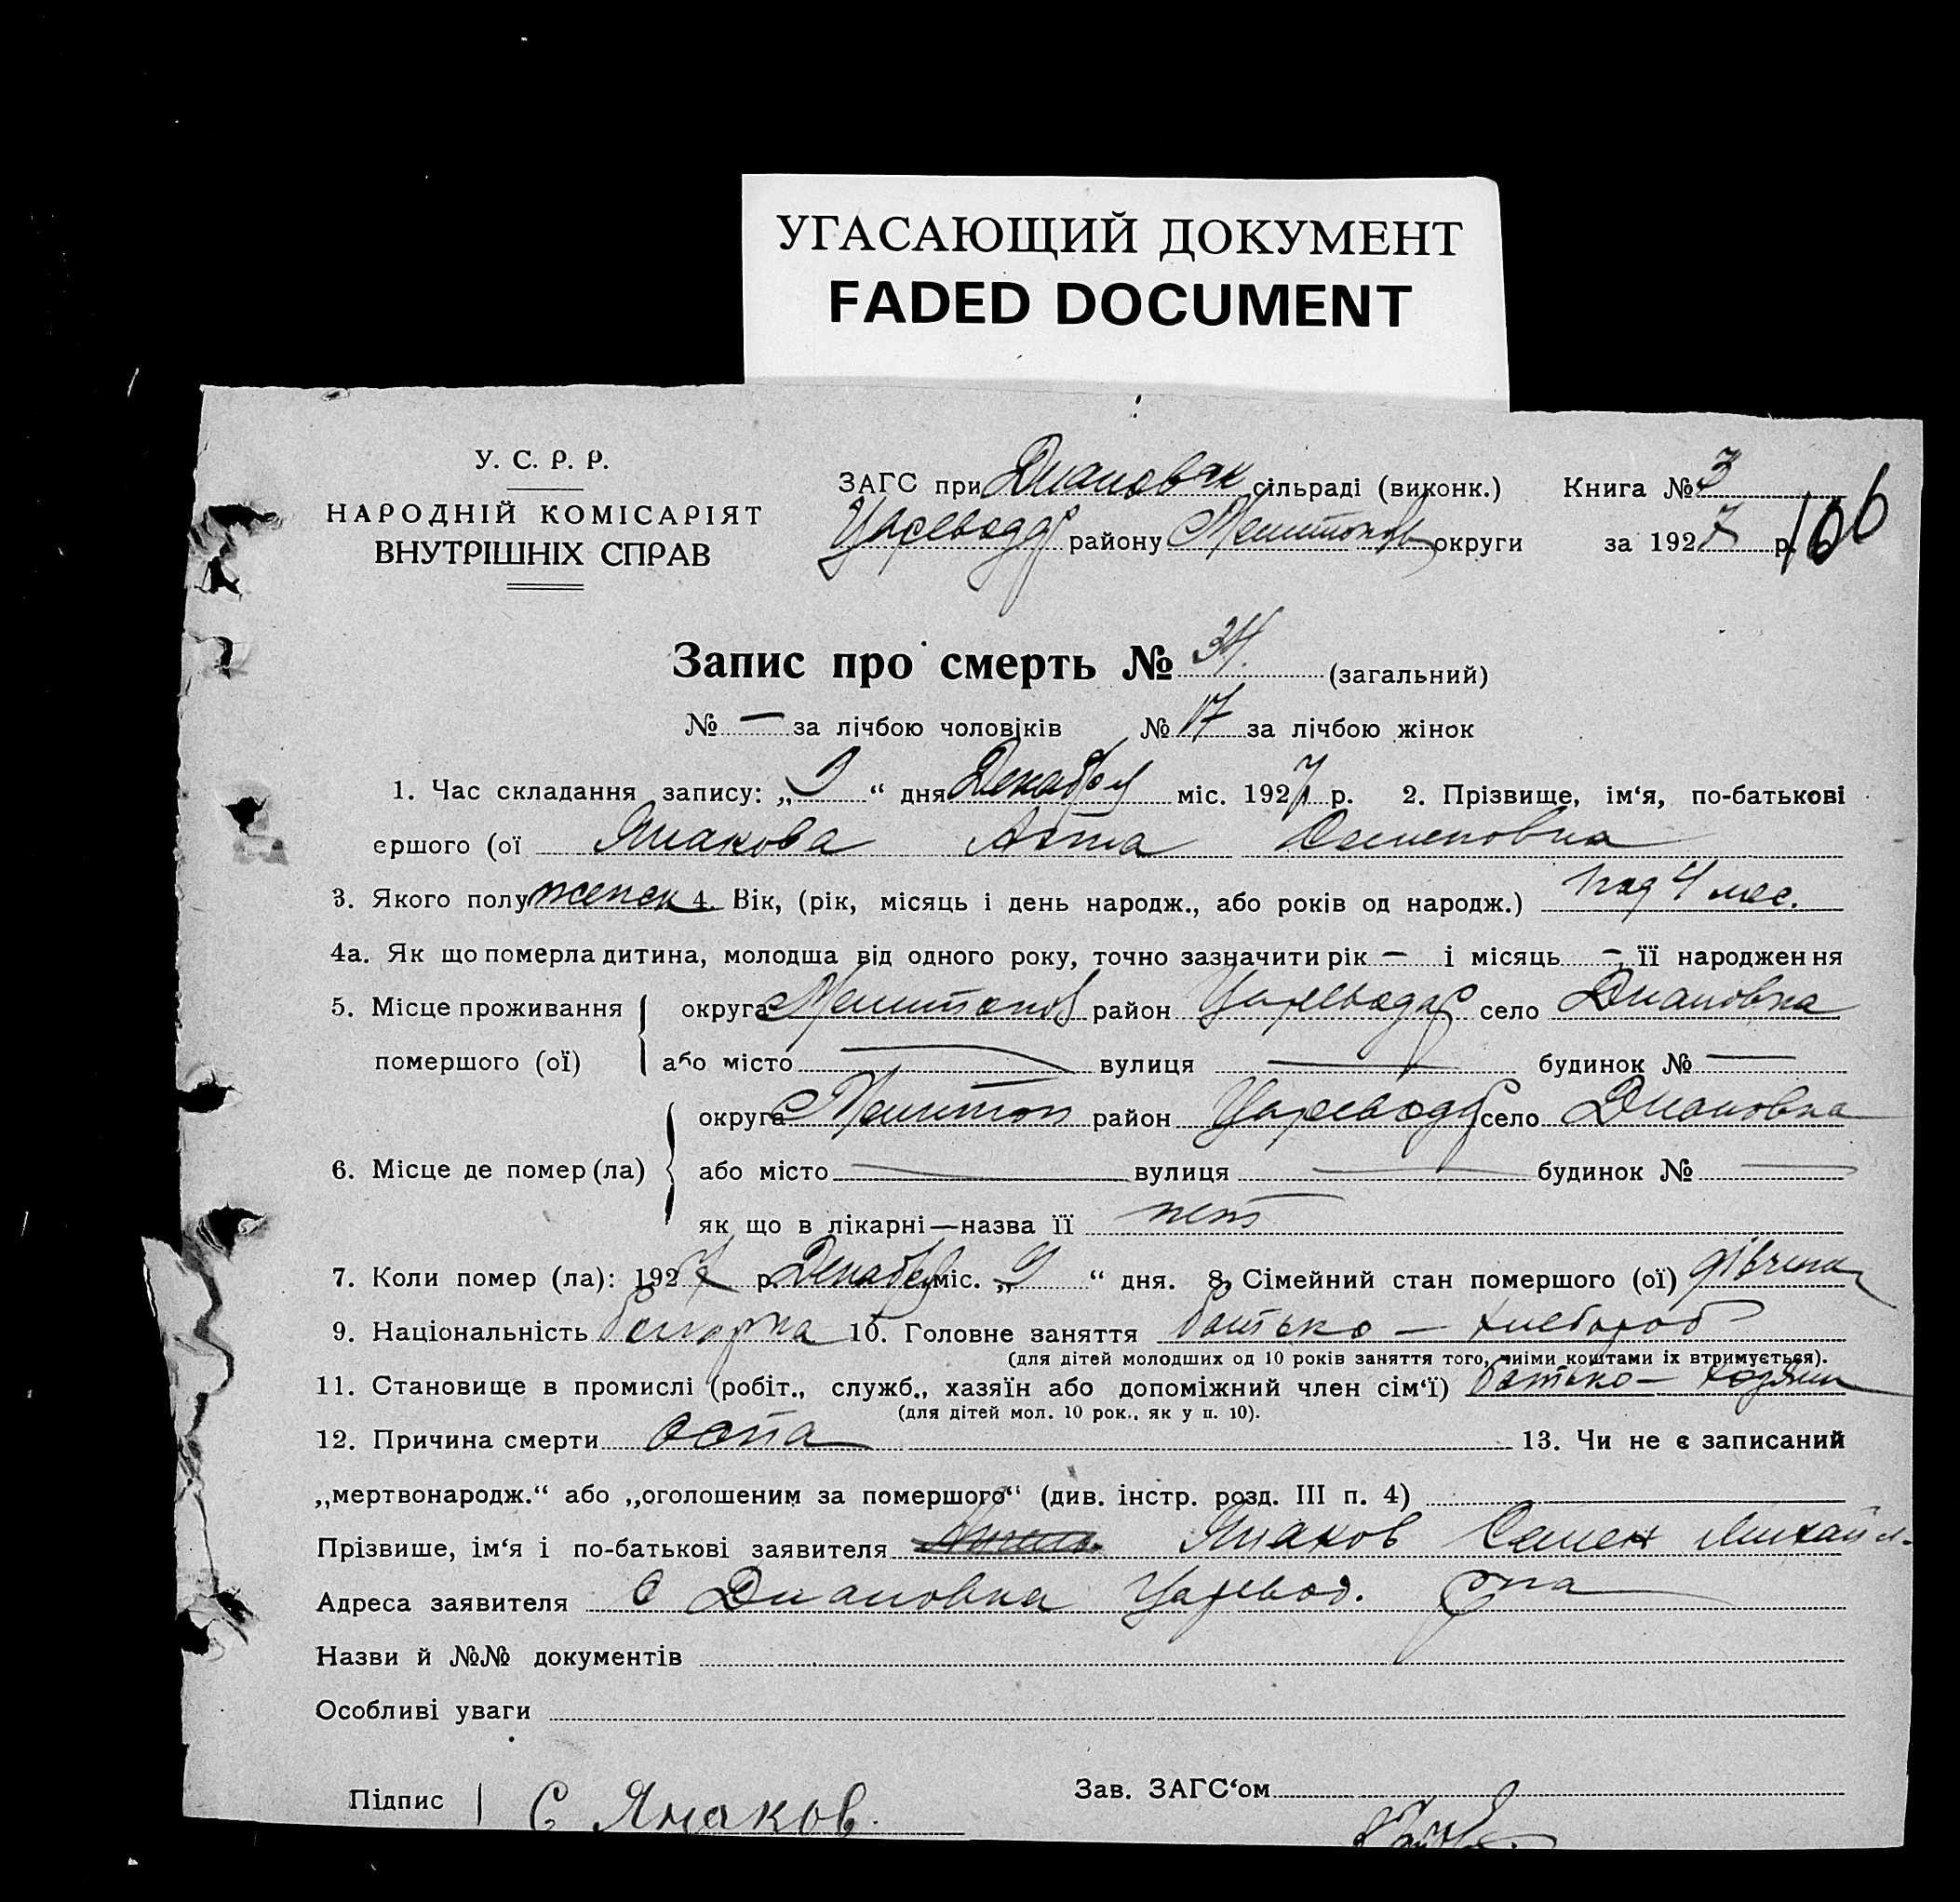 УГАСАЮЩИЙ ДОКУМЕНТ
FADED DOCUMENT
У. С. Р. Р.
НАРОДНІЙ КОМІСАРІЯТ
ВНУТРІШНІХ СПРАВ
ЗАГС при Диановск сільраді (виконк.) Книга № 3
району округи за 1927 р. 106
Запис про смерть № 34 (загальний)
№ — за лічбою чоловіків № 17 за лічбою жінок
1. Час складання запису: „ 9 “ дня Декабря міс. 1927 р. 2. Прізвище, ім‘я, по-батькові
ершого (ої Семеновна
3. Якого полу женск 4. Вік, (рік, місяць і день народж., або років од народж.) 1 год 4 мес.
4а. Як що померла дитина, молодша від одного року, точно зазначити рік – і місяць – її народження
5. Місце проживання округа Мелитопол район село Диановка
помершого (ої) або місто — вулиця — будинок № —
округа Мелитоп район село Диановка
6. Місце де помер (ла) або місто — вулиця — будинок № —
як що в лікарні—назва її нет
7. Коли помер (ла): 1927 р. Декабря міс. „ 9 “ дня. 8. Сімейний стан помершого (ої) дівчина
9. Національність болгорка 10. Головне заняття батько — хлебороб
(для дітей молодших од 10 років заняття того, чиїми коштами їх втримується).
11. Становище в промислі (робіт., служб., хазяїн або допоміжний член сім‘ї) батько —
(для дітей мол. 10 рок., як у п. 10).
12. Причина смерти оспа 13. Чи не є записаний
„мертвонародж.“ або „оголошеним за помершого“ (див. інстр. розд. III п. 4)
Прізвише, ім‘я і по-батькові заявителя Семен Михайл.
Адреса заявителя с Диановка Царевод. р-на
Назви й №№ документів
Особливі уваги
Підпис С Зав. ЗАГС‘ом